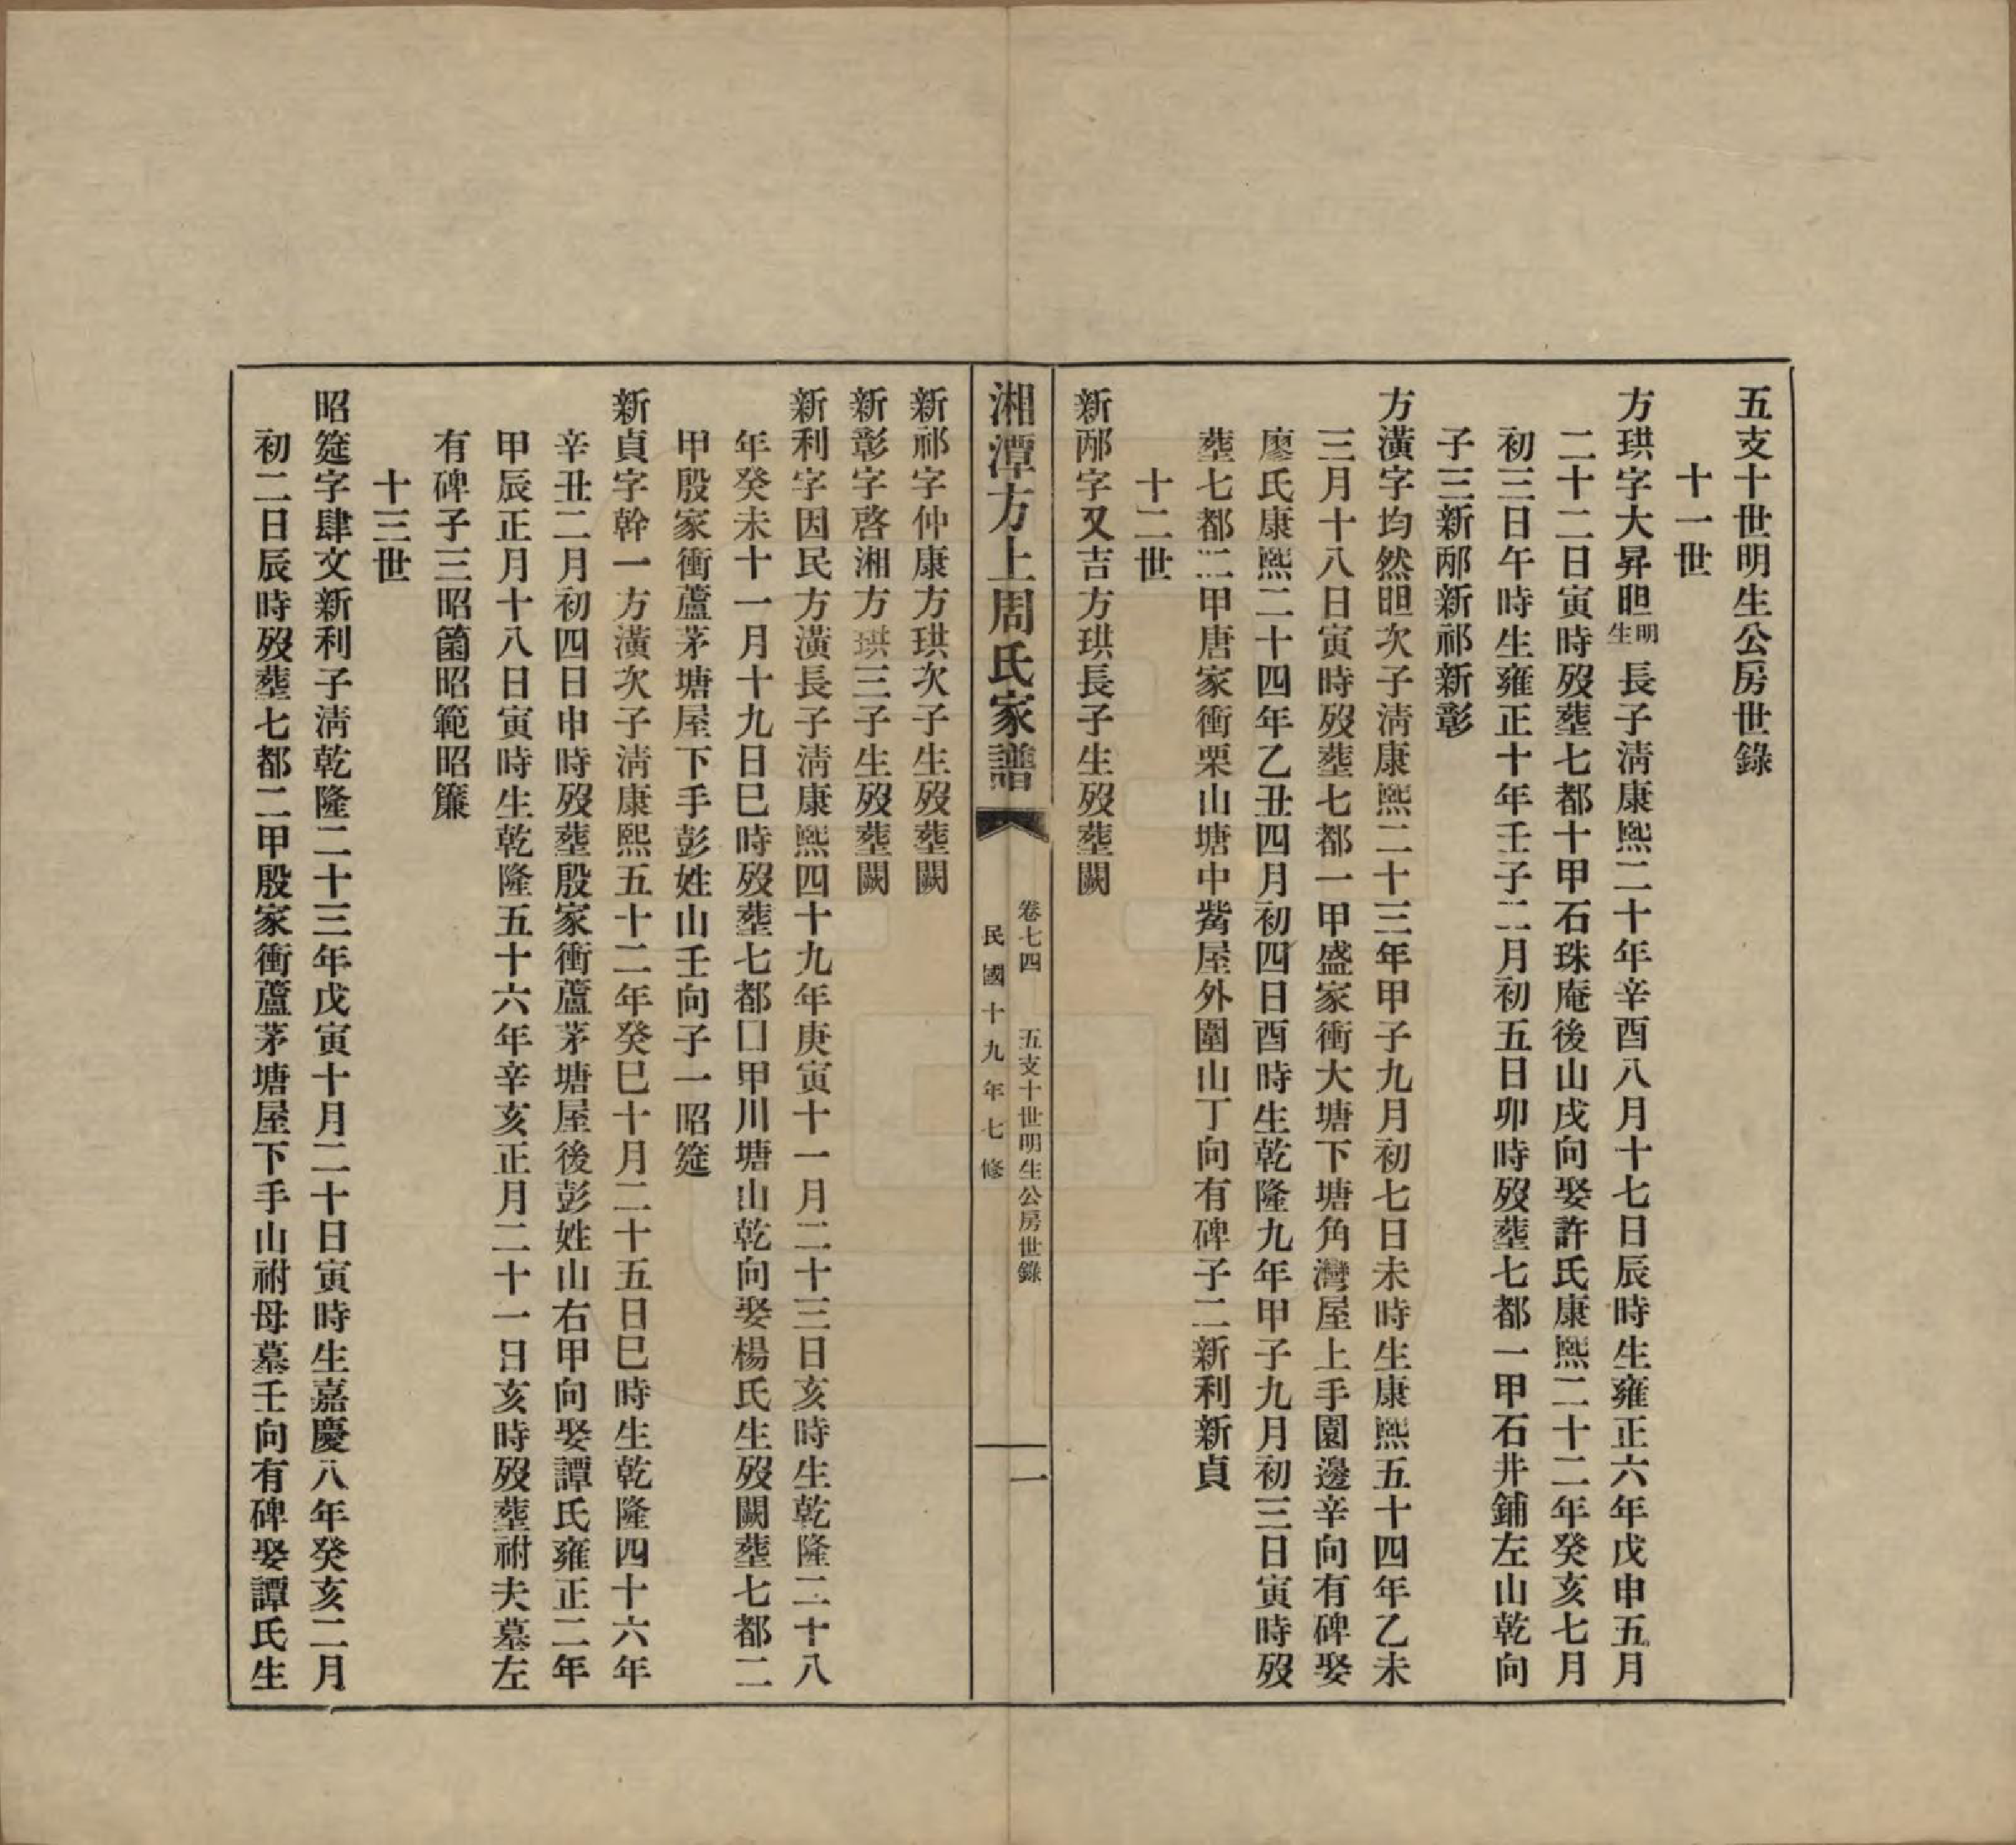 五支十世明生公房世錄
十一世
方珙字大昇䀿明生長子淸康熙二十年辛酉八月十七日辰時生雍正六年戊申五月
二十二日寅時歿塟七都十甲石珠庵後山戌向娶許氏康熙二十二年癸亥七月
初三日午時生雍正十年壬子二月初五日卯時歿塟七都一甲石井鋪左山乾向
子三新邴新祁新彰
方潢字均然䀿次子淸康熙二十三年甲子九月初七日未時生康熙五十四年乙未
三月十八日寅時歿塟七都一甲盛家衝大塘下塘角灣屋上手園邊辛向有碑娶
廖氏康熙二十四年乙丑四月初四日酉時生乾隆九年甲子九月初三日寅時歿
塟七都二甲唐家衝栗山塘中觜屋外圍山丁向有碑子二新利新貞
十二世
新邴字又吉方珙長子生歿塟闕
湘潭方上周氏家譜
卷七四 五支十世明生公房世錄
民國十九年七修
一
新祁字仲康方珙次子生歿塟闕
新彰字啓湘方珙三子生歿塟闕
新利字因民方潢長子淸康熙四十九年庚寅十一月二十三日亥時生乾隆二十八
年癸未十一月十九日巳時歿塟七都囗甲川塘山乾向娶楊氏生歿闕塟七都二
甲殷家衝蘆茅塘屋下手彭姓山壬向子一昭筵
新貞字幹一方潢次子淸康熙五十二年癸巳十月二十五日巳時生乾隆四十六年
辛丑二月初四日申時歿塟殷家衝蘆茅塘屋後彭姓山右甲向娶譚氏雍正二年
甲辰正月十八日寅時生乾隆五十六年辛亥正月二十一日亥時歿塟祔夫墓左
有碑子三昭箘昭範昭簾
十三世
昭筵字肆文新利子淸乾隆二十三年戊寅十月二十日寅時生嘉慶八年癸亥二月
初二日辰時歿塟七都二甲殷家衝蘆茅塘屋下手山祔母墓壬向有碑娶譚氏生